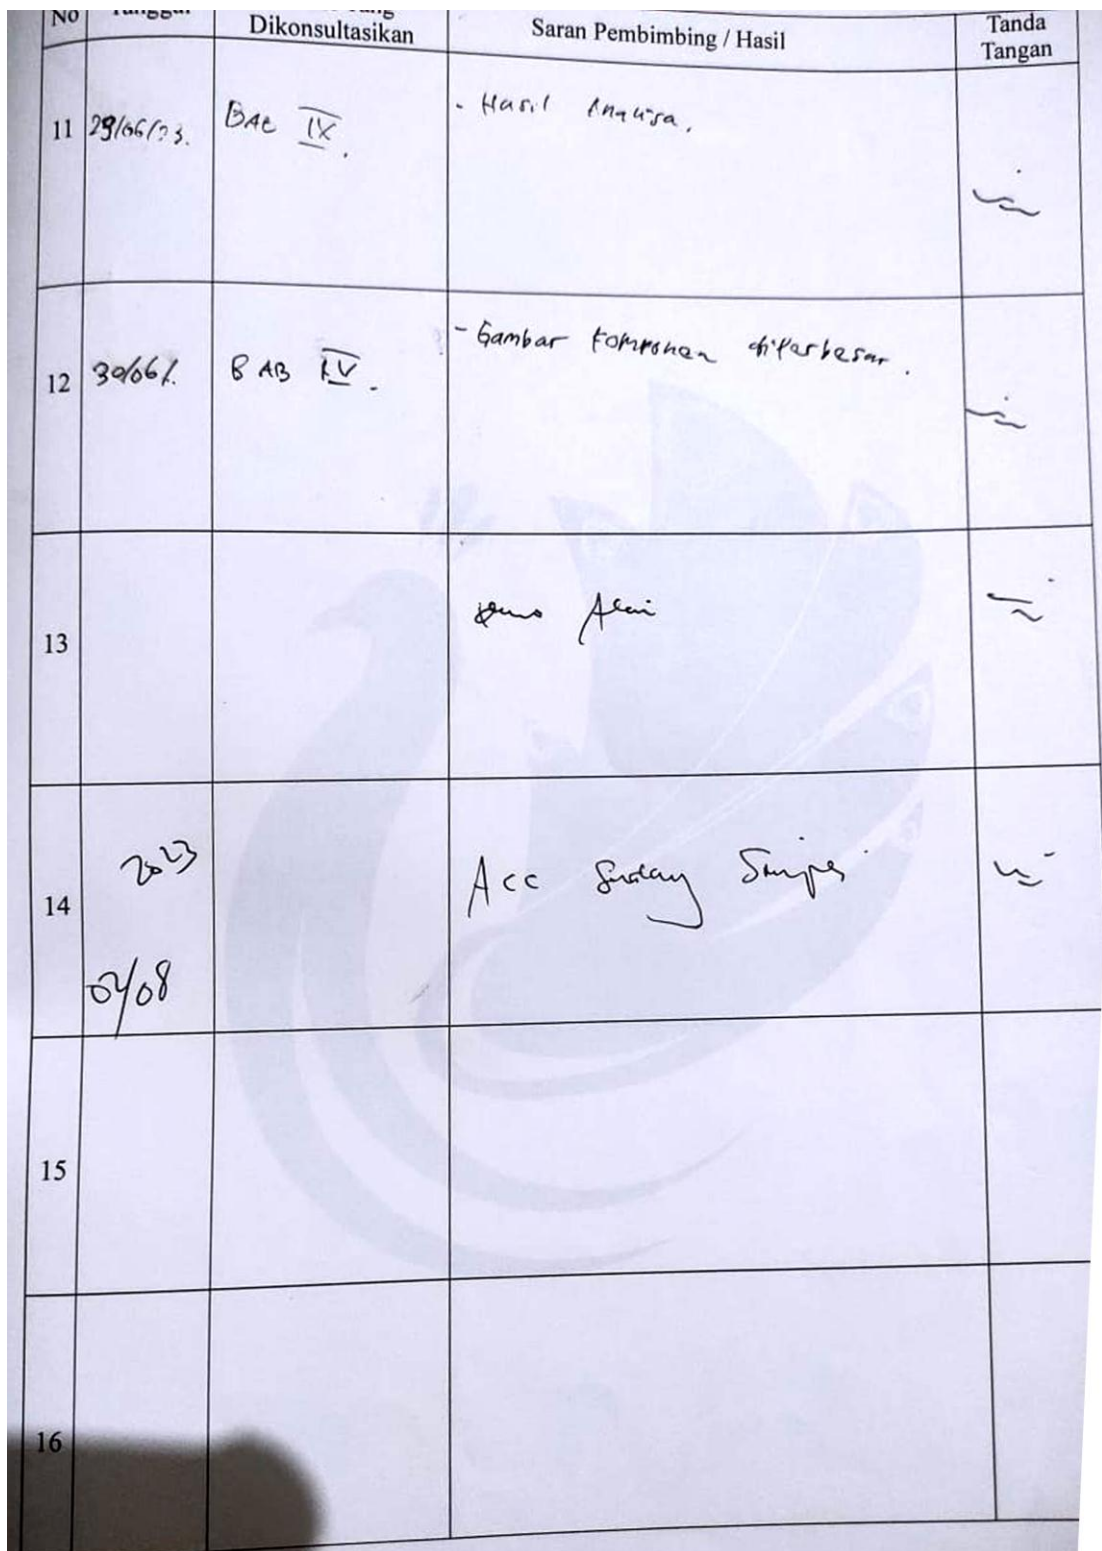 No
Dikonsultasikan
Saran Pembimbing / Hasil
Tanda
Tangan
11 29/06/23. BAB IX. - Hasil Analisa.
12 30/06/. BAB IV. - Gambar komponen diperbesar.
13
2023
14 Acc Sidang
/08
15
16